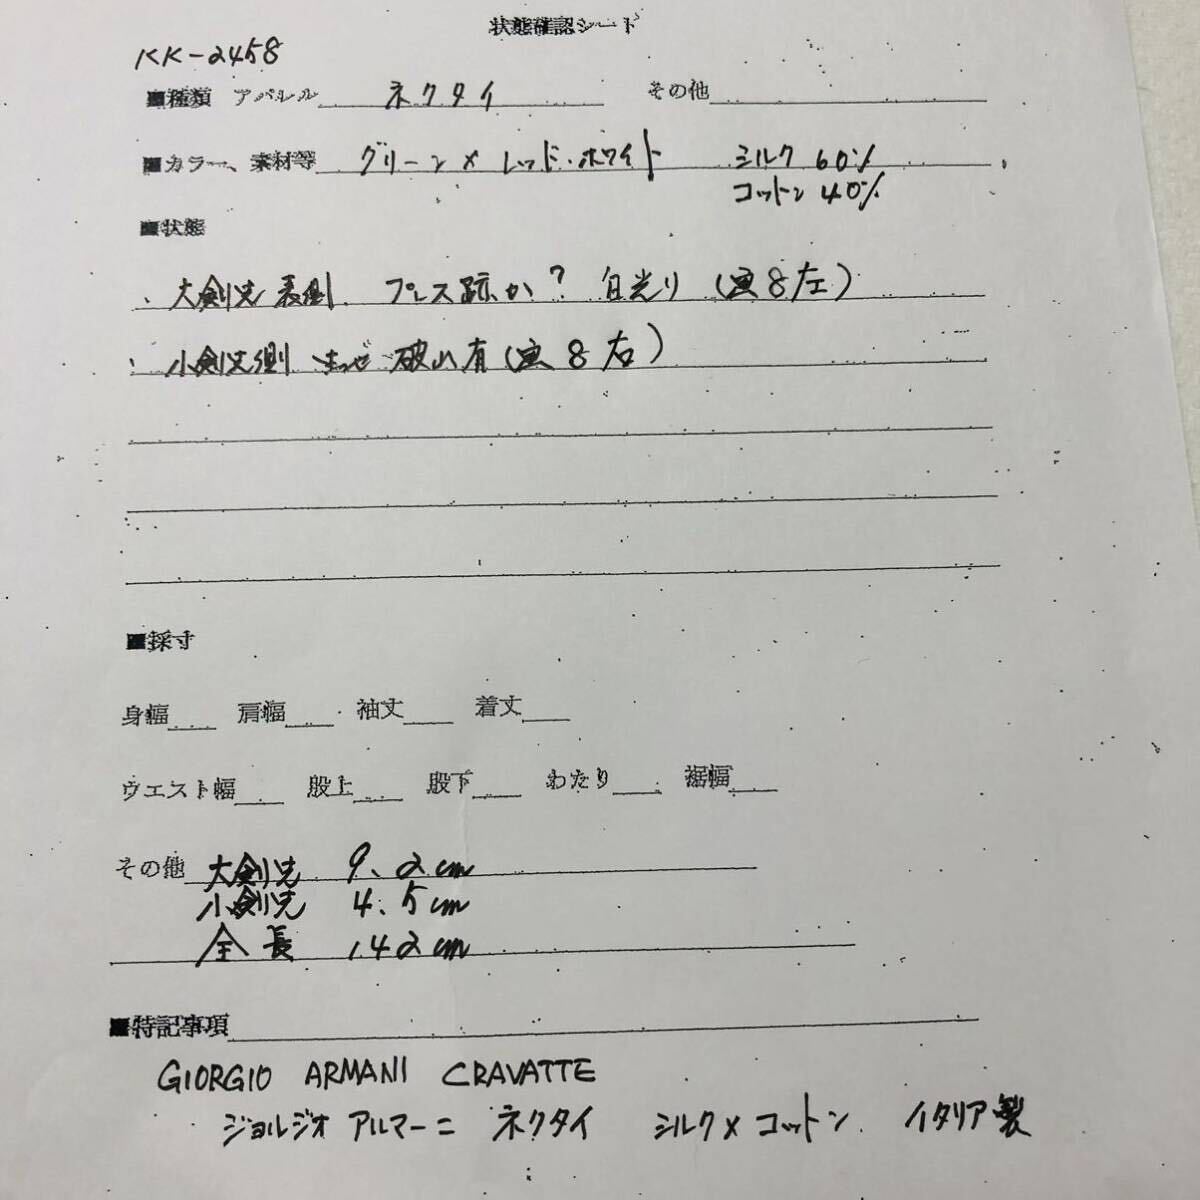 状態確認シート
KK-2458
■種類 アパレル ネクタイ その他
■カラー、素材等 グリーン×レッド・ホワイト シルク 60%
コットン 40%
■状態
、大剣先 表側 プレス跡か? 白光り (画8左)
、小剣先側 破れ有 (画8右)
■採寸
身幅 肩幅 袖丈 着丈
ウエスト幅 股上 股下 わたり 裾幅
その他 大剣先 9.2cm
小剣先 4.5cm
全長 142cm
■特記事項
GIORGIO ARMANI CRAVATTE
ジョルジオ アルマーニ ネクタイ シルク×コットン イタリア製